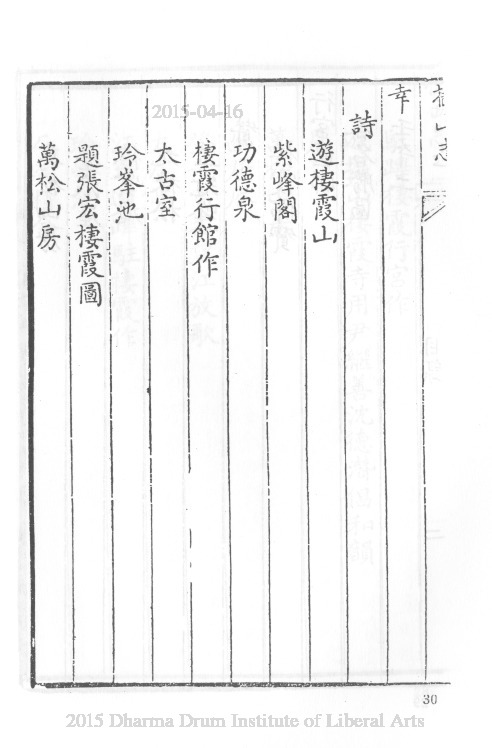 幸
詩
遊棲霞山
紫峰閣
功德泉
棲霞行館作
太古室
玲峯池
題張宏棲霞圖
萬松山房
30
2015-04-16
2015 Dharma Drum Institute of Liberal Arts